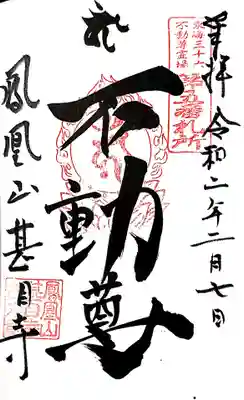 奉拝 令和二年二月七日
東海三十六
不動尊霊場
番札所
不動尊
鳳凰山甚目寺
鳳凰山